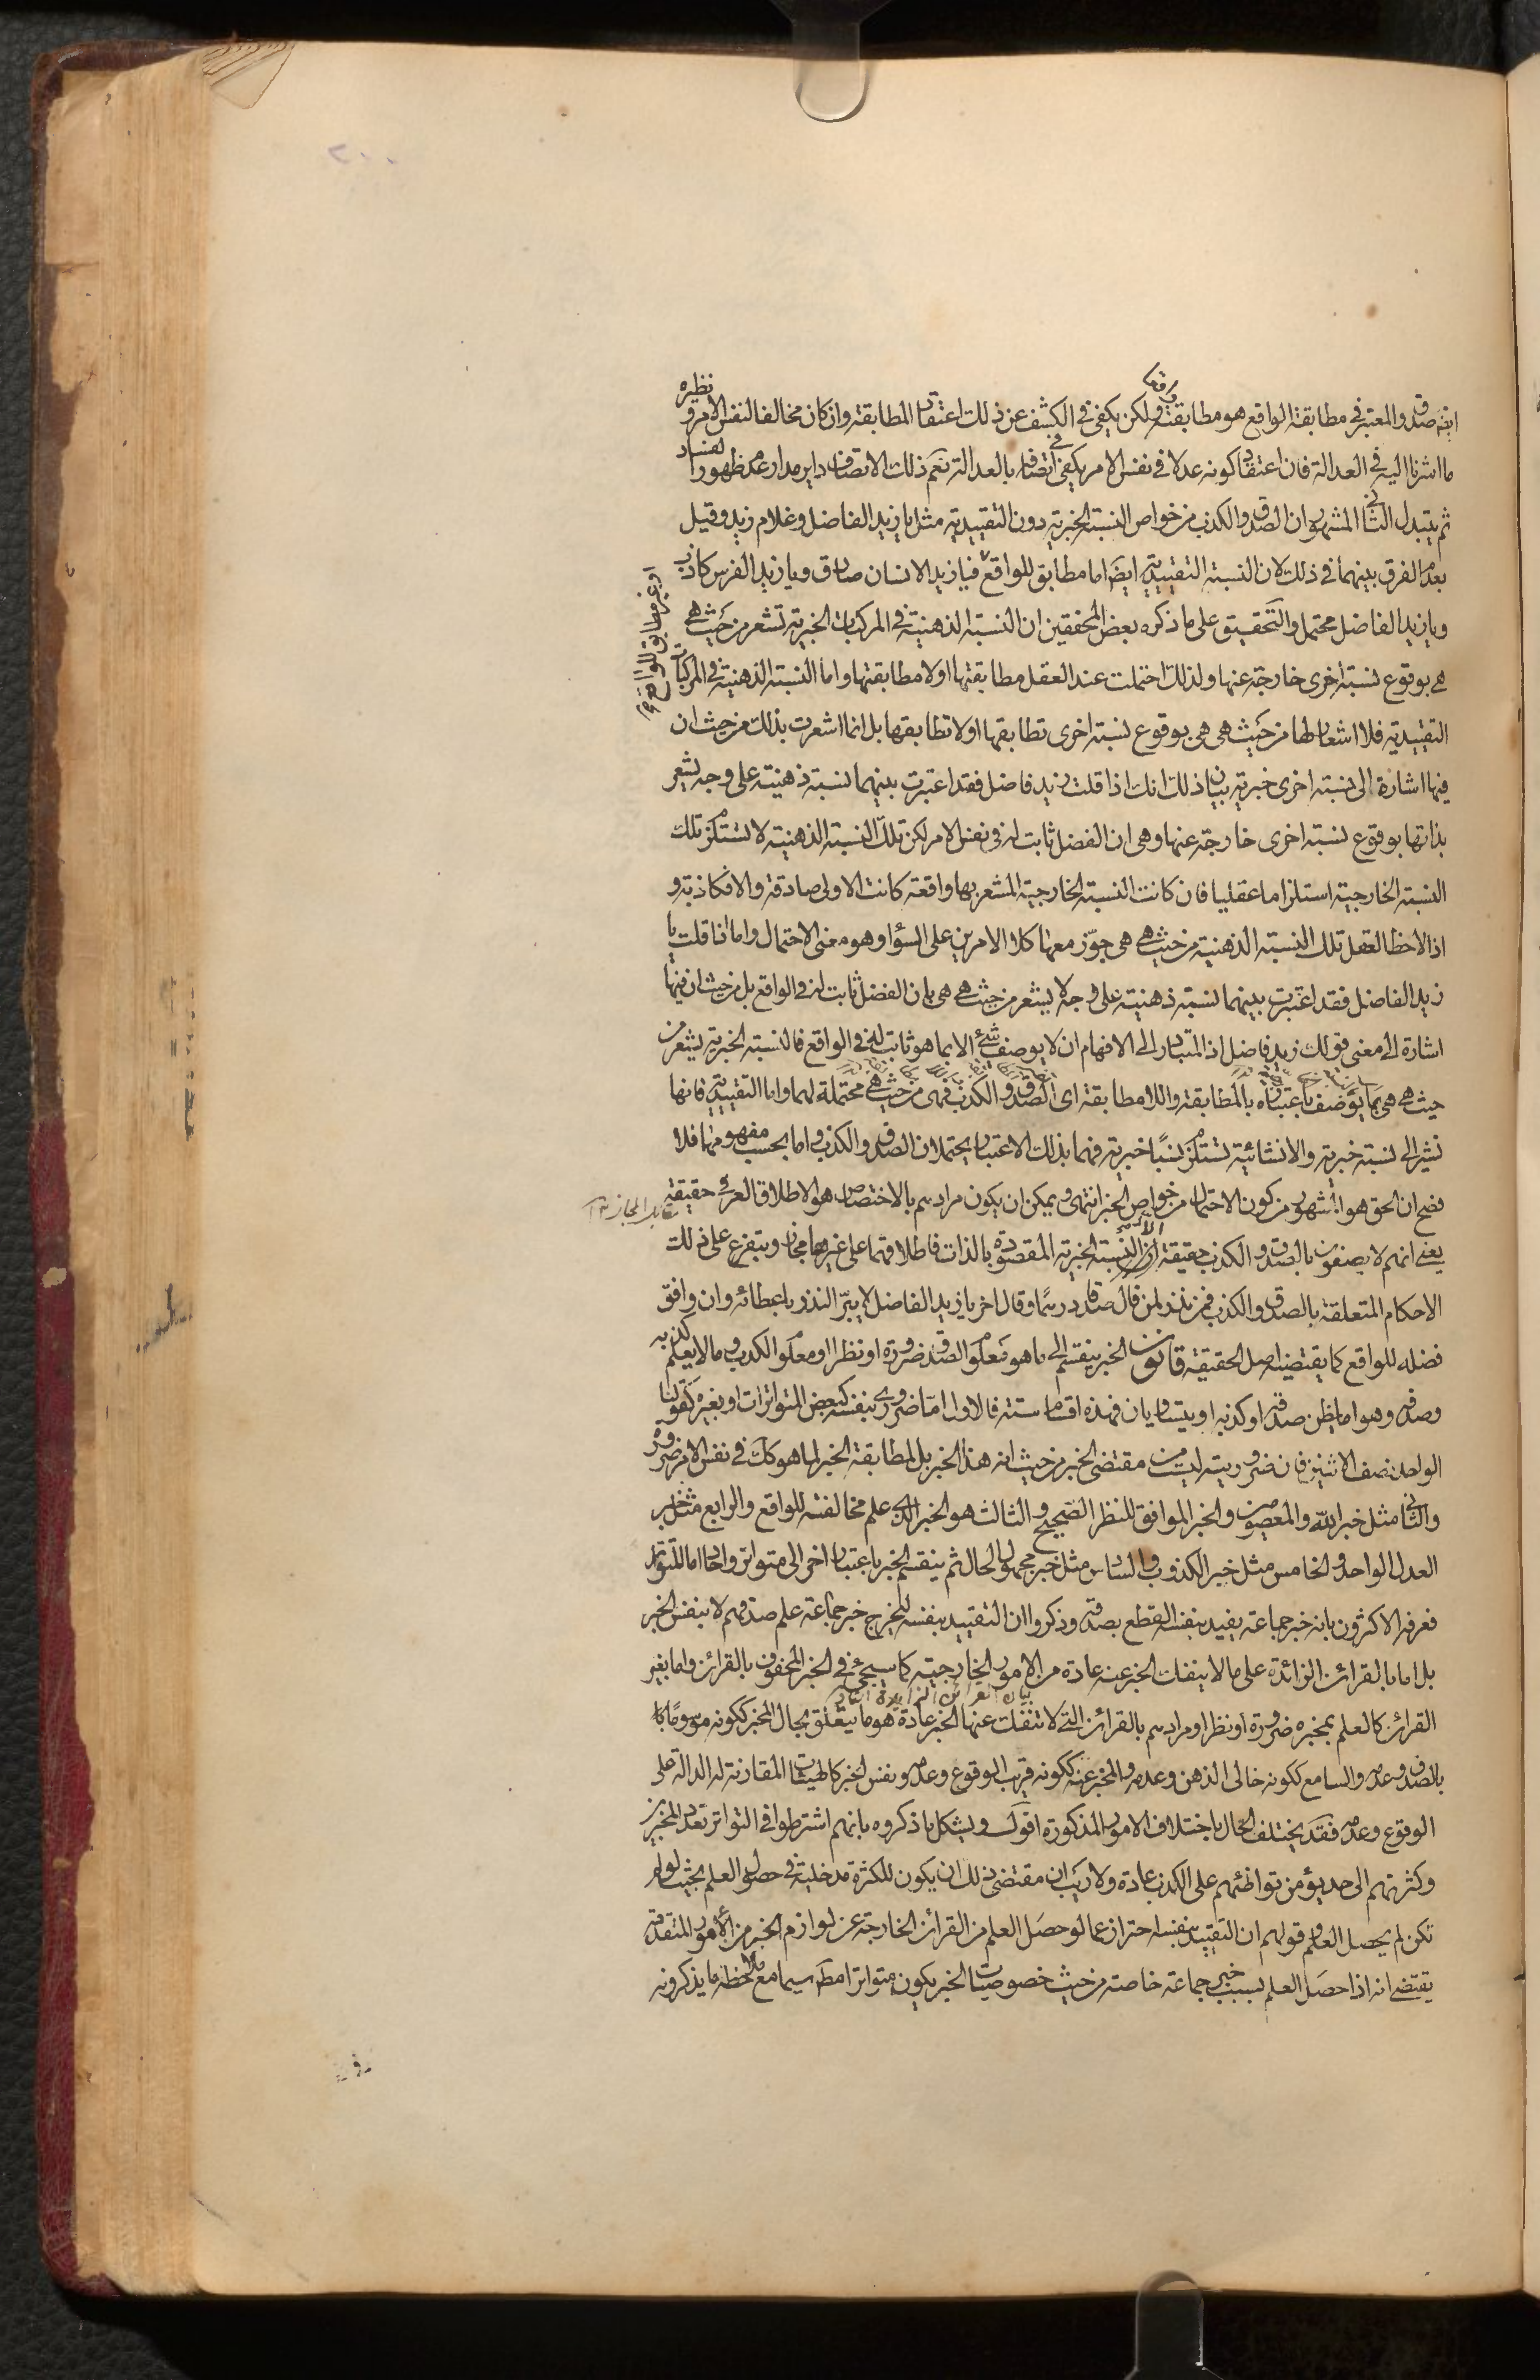 ايضا صدق والمعتبر في مطابقة الواقع هو مطابقته ولكن يكفى في الكشف عن ذلك اعتقاد المطابقة وان كان مخالفا لنفس الامر ونظيره
ما اشرنا اليه في العدالة فان اعتقاد كونه عدلا في نفس الامر يكفى في اتصافه بالعدالة نعم ذلك الاتصاف داير مدار عدم ظهور الفساد
ثم يتبدل الثانى المشهور ان الصدق والكذب من خواص النسبة الخبرية دون التقييدية مثل يا زيد الفاضل وغلام زيد وقيل
بعدم الفرق بينهما في ذلك لان النسبة التقييدية ايضا اما مطابق للواقع فيا زيد الانسان صادق ويا زيد الفرس كاذب
او غير مطابق للواقع
ويا زيد الفاضل محتمل والتحقيق على ما ذكره بعض المحققين ان النسبة الذهنية في المركبات الخبرية تشعر من حيث هى
هى بوقوع نسبة اخرى خارجة عنها ولذلك احتملت عند العقل مطابقتها او لا مطابقتها واما النسبة الذهنية في المركبات
التقييدية فلا اشعار لها من حيث هى هى بوقوع نسبة اخرى تطابقها او لا تطابقها بل انما اشعرت بذلك من حيث ان
فيها اشارة الى نسبة اخرى خبرية بيان ذلك انك اذا قلت زيد فاضل فقد اعتبرت بينهما نسبة ذهنية على وجه يشعر
بذاتها بوقوع نسبة اخرى خارجة عنها وهى ان الفضل ثابت له في نفس الامر لكن تلك النسبة الذهنية لا تستلزم تلك
النسبة الخارجية استلزاما عقليا فان كانت النسبة الخارجية المشعر بها واقعة كانت الاولى صادقة والا فكاذبة و
اذا لاحظ العقل تلك النسبة الذهنية من حيث هى هى جوز معها كلا الامرين على السواء وهو معنى الاحتمال واما اذا قلت يا
زيد الفاضل فقد اعتبرت بينهما نسبة ذهنية على وجه لا يشعر من حيث هى هى بان الفضل ثابت له في الواقع بل من حيث ان فيها
اشارة الى معنى قولك زيد فاضل اذ المتبادر الى الافهام ان لا يوصف شئ الا بما هو ثابت له في الواقع فالنسبة الخبرية يشعر من
حيث هى هى بما يوصف باعتباره بالمطابقة واللا مطابقة اى الصدق والكذب فهى من حيث هى محتملة لهما واما التقييدية فانها
تشير الى نسبة خبرية والانشائية تستلزم نسبًا خبرية فهما بذلك الاعتبار يحتملان الصدق والكذب واما بحسب مفهومهما فلا
فصح ان الحق هو المشهور من كون الاحتمال من خواص الخبر انتهى ويمكن ان يكون مرادهم بالاختصاص هو الاطلاق العرفى حقيقة
مقابل المجاز
يعنى انهم لا يصفون بالصدق والكذب حقيقة الا النسبة الخبرية المقصودة بالذات فاطلاقهما على غيرها مجاز ويتفرع على ذلك
الاحكام المتعلقة بالصدق والكذب فمن نذر لمن قال صدقا درهمًا وقال اخر يا زيد الفاضل لا يبرّ النذر باعطائه وان وافق
فضله للواقع كما يقتضيه اصل الحقيقة قانون الخبر ينقسم الى ما هو معلوم الصدق ضرورة او نظرا او معلوم الكذب وما لا يعلم كذبه
وصدقه وهو اما يظن صدقه او كذبه او يتساويان فهذه اقسام ستة فالاول اما ضرورى بنفسه كبعض المتواترات او بغيره كقولنا
الواحد نصف الاثنين فان ضروريته ليست من مقتضى الخبر من حيث انه هذا الخبر بل لمطابقة الخبر لما هو كك في نفس الامر ضرورة
والثانى مثل خبر الله والمعصومين والخبر الموافق للنظر الصحيح والثالث هو الخبر الذى علم مخالفته للواقع والرابع مثل خبر
العدل الواحد والخامس مثل خبر الكذوب والسادس مثل خبر مجهول الحال ثم ينقسم الخبر باعتبار اخر الى متواتر واحاد اما المتواتر
فعرفه الاكثرون بانه خبر جماعة يفيد بنفسه القطع بصدقه وذكروا ان التقييد بنفسه ليخرج خبر جماعة علم صدقهم لا بنفس الخبر
بل اما بالقرائن الزائدة على ما لا ينفك الخبر عنه عادة من الامور الخارجية كما سيجئ في الخبر المحفوف بالقرائن واما بغير
بيان القرائن الزايدة
القرائن كالعلم بمخبره ضرورة او نظرا ومرادهم بالقرائن التى لا تنفك عنها الخبر عادة هو ما يتعلق بحال المخبر ككونه موسومًا
بالصدق وعدمه والسامع ككونه خالى الذهن وعدمه والمخبر عنه ككونه قريب الوقوع وعدمه ونفس الخبر كالهيئات المقارنة له الدالة على
الوقوع وعدمه فقد يختلف الحال باختلاف الامور المذكورة اقول ويشكل ما ذكروه بانهم اشترطوا في التواتر تعدد المخبرين
وكثرتهم الى حد يؤمن تواطئهم على الكذب عادة ولا ريب ان مقتضى ذلك ان يكون للكثرة مدخلية في حصول العلم بحيث لو لم
تكن لم يحصل العلم وقولهم ان التقييد بنفسه احتراز عما لو حصل العلم من القرائن الخارجة عن لوازم الخبر من الامور المتقدمة
يقتضى انه اذا حصل العلم بسبب خبر جماعة خاصة من حيث خصوصيات الخبر يكون متواترا مط سيما مع ملاحظة ما يذكرونه